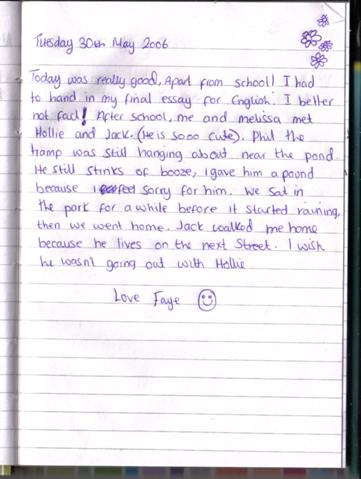 Tuesday 30th May 2006
Today was really good, Apart from school! I had
to hand in my final essay for English. I better
not fail! After school, me and melissa met
Hollie and Jack. (He is sooo cute). Phil the
tramp was still hanging about near the pond.
He still stinks of booze, I gave him a pound
because I feel sorry for him. We sat in
the park for a while before it started raining,
then we went home. Jack walked me home
because he lives on the next Street. I wish
he wasnt going out with Hollie
Love Faye